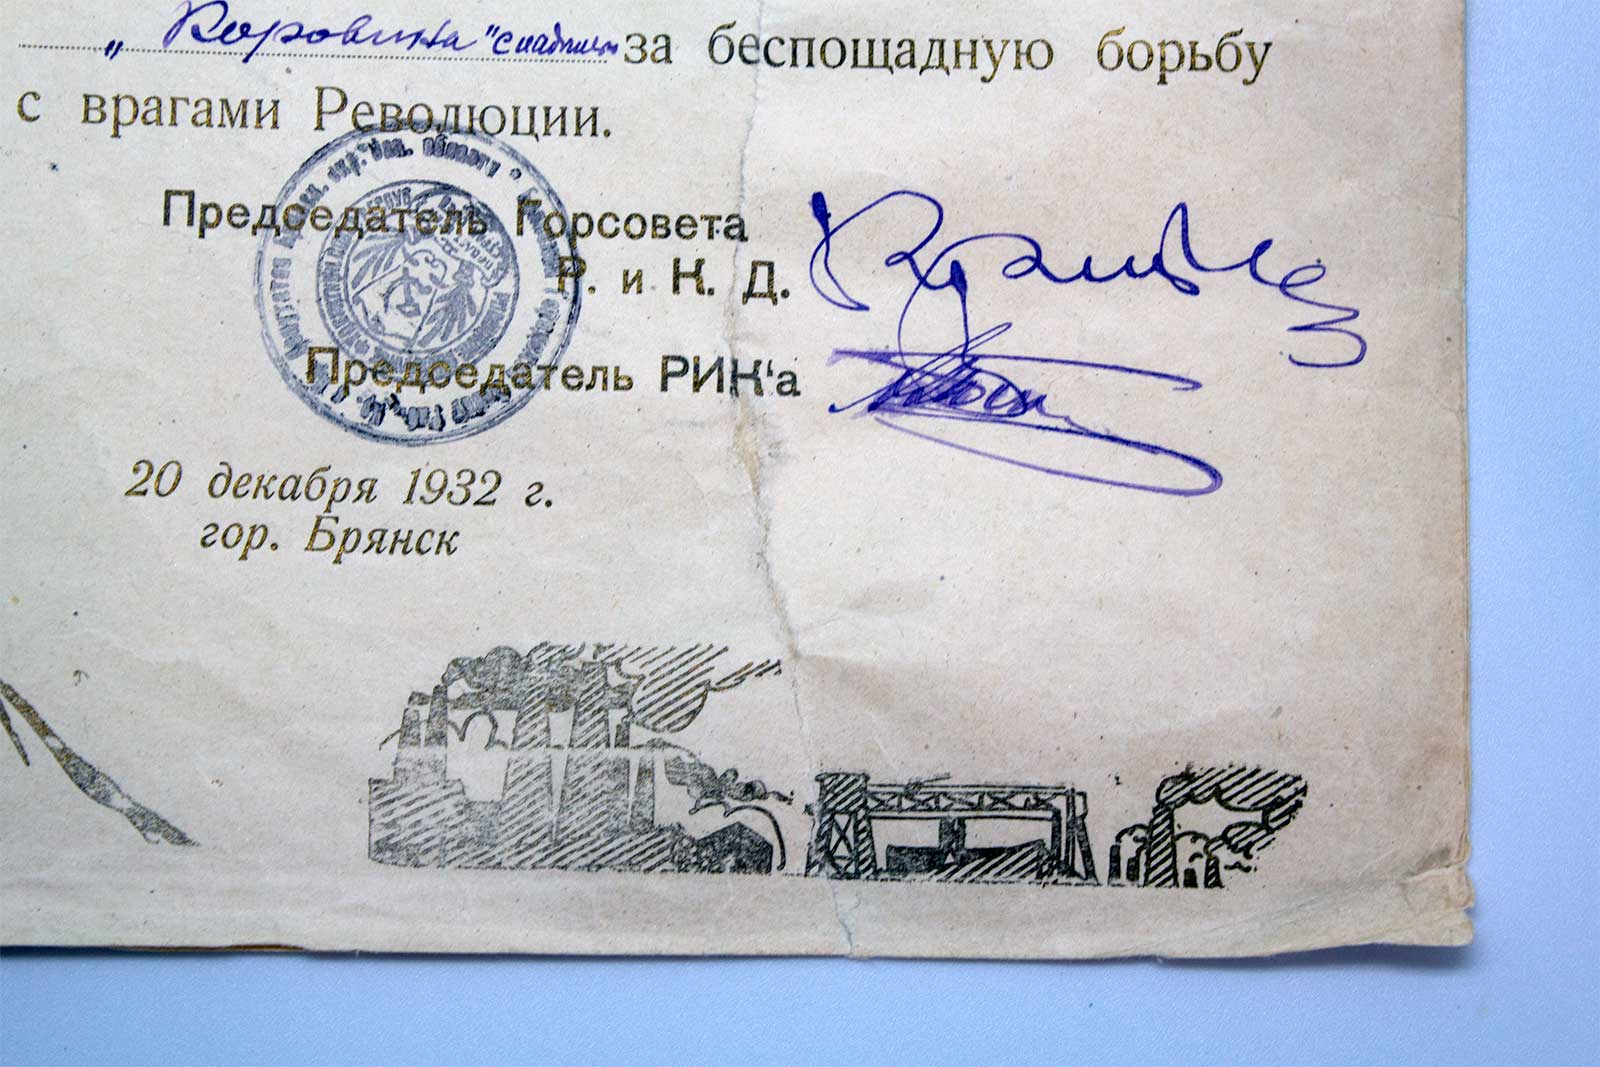 „Коровина" с надписью за беспощадную борьбу
с врагами Революции.
Председатель Горсовета
Р. и К. Д.
Председатель РИК‘а
20 декабря 1932 г.
гор. Брянск